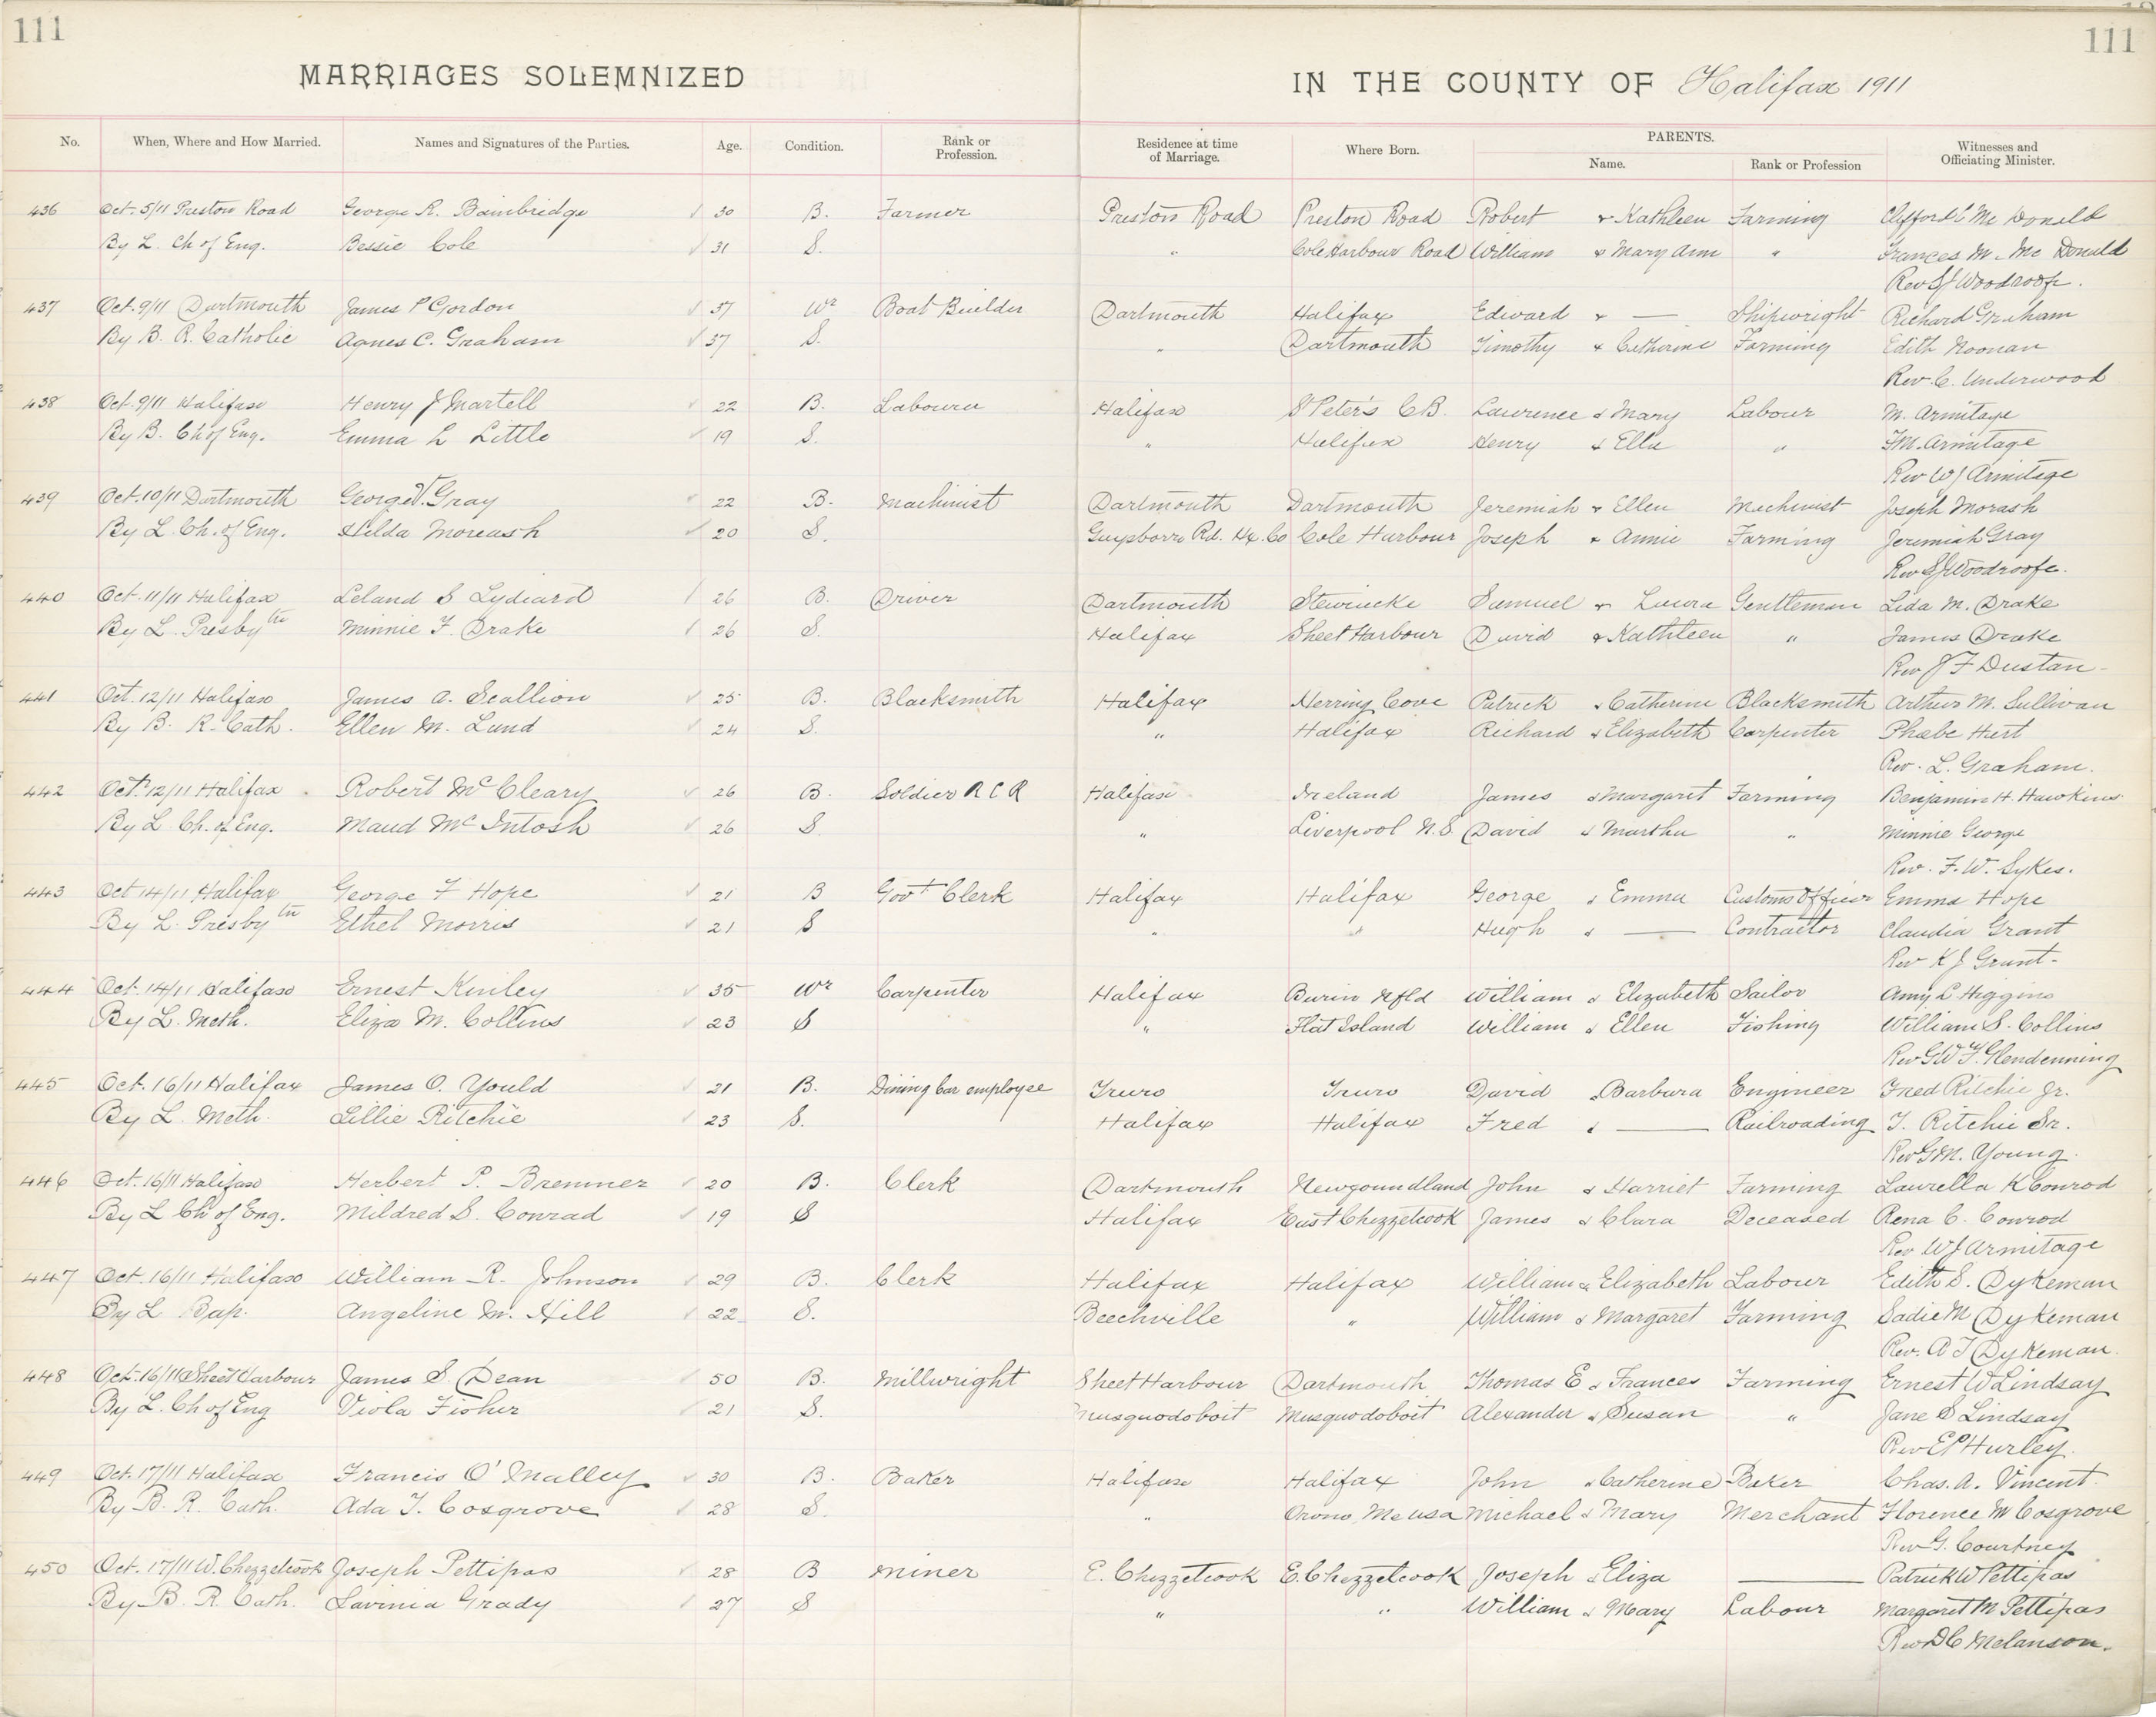 111 111
MARRIAGES SOLEMNIZED IN THE COUNTY OF Halifax 1911
No. When, Where and How Married. Names and Signatures of the Parties. Age. Condition. Rank or Profession. Residence at time of Marriage. Where Born. PARENTS. Name. Rank or Profession Witnesses and Officiating Minister.
436 Oct. 5/11 Preston Road George R. Bambridge 30 B. Farmer Preston Road Preston Road Robert & Kathleen Farming Clifford C Mc Donald
By L. Ch of Eng. Bessie Cole 31 S. " Cole Harbour Road William & Mary Ann " Frances M. Mc Donald
Rev SJ Woodroofe.
437 Oct. 9/11 Dartmouth James P Gordon 37 Wr Boat Builder Dartmouth Halifax Edward & — Shipwright Richard Graham
By B. R. Catholic Agnes C. Graham 37 S. " Dartmouth Timothy & Catherine Farming Edith Noonan
Rev. C. Underwood
438 Oct. 9/11 Halifax Henry J Martell 22 B. Labourer Halifax St Peter's C.B. Lawrence & Mary Labour M. Armitage
By B. Ch of Eng. Emma L Little 19 S. " Halifax Henry & Ella " F.M. Armitage
Rev WJ Armitage
439 Oct. 10/11 Dartmouth George V. Gray 22 B. Machinist Dartmouth Dartmouth Jeremiah & Ellen Machinist Joseph Morash
By L. Ch. of Eng. Hilda Moreash 20 S. Guysborro Rd. Hx. Co Cole Harbour Joseph & Annie Farming Jeremiah Gray
Rev SJ Woodroofe.
440 Oct. 11/11 Halifax Leland S Lydiard 26 B. Driver Dartmouth Stewiacke Samuel & Laura Gentleman Lida M. Drake
By L. Presbytn Minnie F. Drake 26 S. Halifax Sheet Harbour David & Kathleen " James Drake
Rev J F Dustan
441 Oct. 12/11 Halifax James A. Scallion 25 B. Blacksmith Halifax Herring Cove Patrick & Catherine Blacksmith Arthur M. Sullivan
By B. R. Cath. Ellen M. Lund 24 S. " Halifax Richard & Elizabeth Carpenter Phebe Hurt
Rev. L. Graham.
442 Oct. 12/11 Halifax Robert McCleary 26 B. Soldier R C R Halifax Ireland James & Margaret Farming Benjamin H. Hawkins
By L. Ch. of Eng. Maud McIntosh 26 S. " Liverpool N.S. David & Martha " Minnie George
Rev. F. W. Sykes.
443 Oct 14/11 Halifax George F Hope 21 B Govt Clerk Halifax Halifax George & Emma Customs Officer Emma Hope
By L. Presbytn Ethel Morris 21 S " " Hugh & — Contractor Claudia Grant
Rev K J Grant.
444 Oct. 14/11 Halifax Ernest Kinley 35 Wr Carpenter Halifax Burin Nfld William & Elizabeth Sailor Amy L Higgins
By L. Meth. Eliza M. Collins 23 S " Flat Island William & Ellen Fishing William S. Collins
Rev G W F. Glendenning
445 Oct. 16/11 Halifax James O. Yould 21 B. Dining Car employee Truro Truro David & Barbara Engineer Fred Ritchie Jr.
By L. Meth. Lillie Ritchie 23 S. Halifax Halifax Fred & — Railroading F. Ritchie Sr.
Rev G.M. Young.
446 Oct. 16/11 Halifax Herbert P. Bremner 20 B. Clerk Dartmouth Newfoundland John & Harriet Farming Laurella K Conrod
By L Ch of Eng. Mildred S. Conrad 19 S Halifax East Chezzetcook James & Clara Deceased Rena C. Conrod
Rev WJ Armitage
447 Oct. 16/11 Halifax William R. Johnson 29 B. Clerk Halifax Halifax William & Elizabeth Labour Edith S. Dykeman
By L Bap. Angeline M. Hill 22 S. Beechville " William & Margaret Farming Sadie M Dykeman
Rev. A J Dykeman.
448 Oct. 16/11 Sheet Harbour James S. Dean 50 B. Millwright Sheet Harbour Dartmouth Thomas E & Frances Farming Ernest W Lindsay
By L. Ch of Eng Viola Fisher 21 S. Musquodoboit Musquodoboit Alexander & Susan " Jane S Lindsay
Rev EP Hurley.
449 Oct. 17/11 Halifax Francis O'Malley 30 B. Baker Halifax Halifax John & Catherine Baker Chas. A. Vincent
By B. R. Cath. Ada T. Cosgrove 28 S. " Orono, Me USA Michael & Mary Merchant Florence M Cosgrove
Rev G. Courtney
450 Oct. 17/11 W. Chezzetcook Joseph Pettipas 28 B Miner E. Chezzetcook E. Chezzetcook Joseph & Eliza — Patrick W Pettipas
By B. R. Cath. Lavinia Grady 27 S " " William & Mary Labour Margaret M Pettipas
Rev D C Melanson.